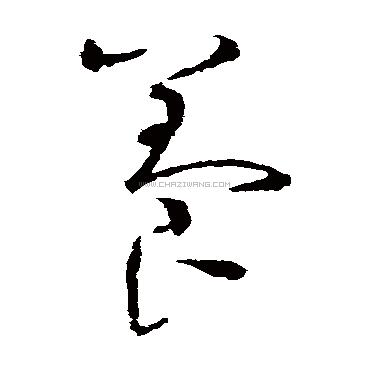 養
WWW.CHAZIWANG.COM